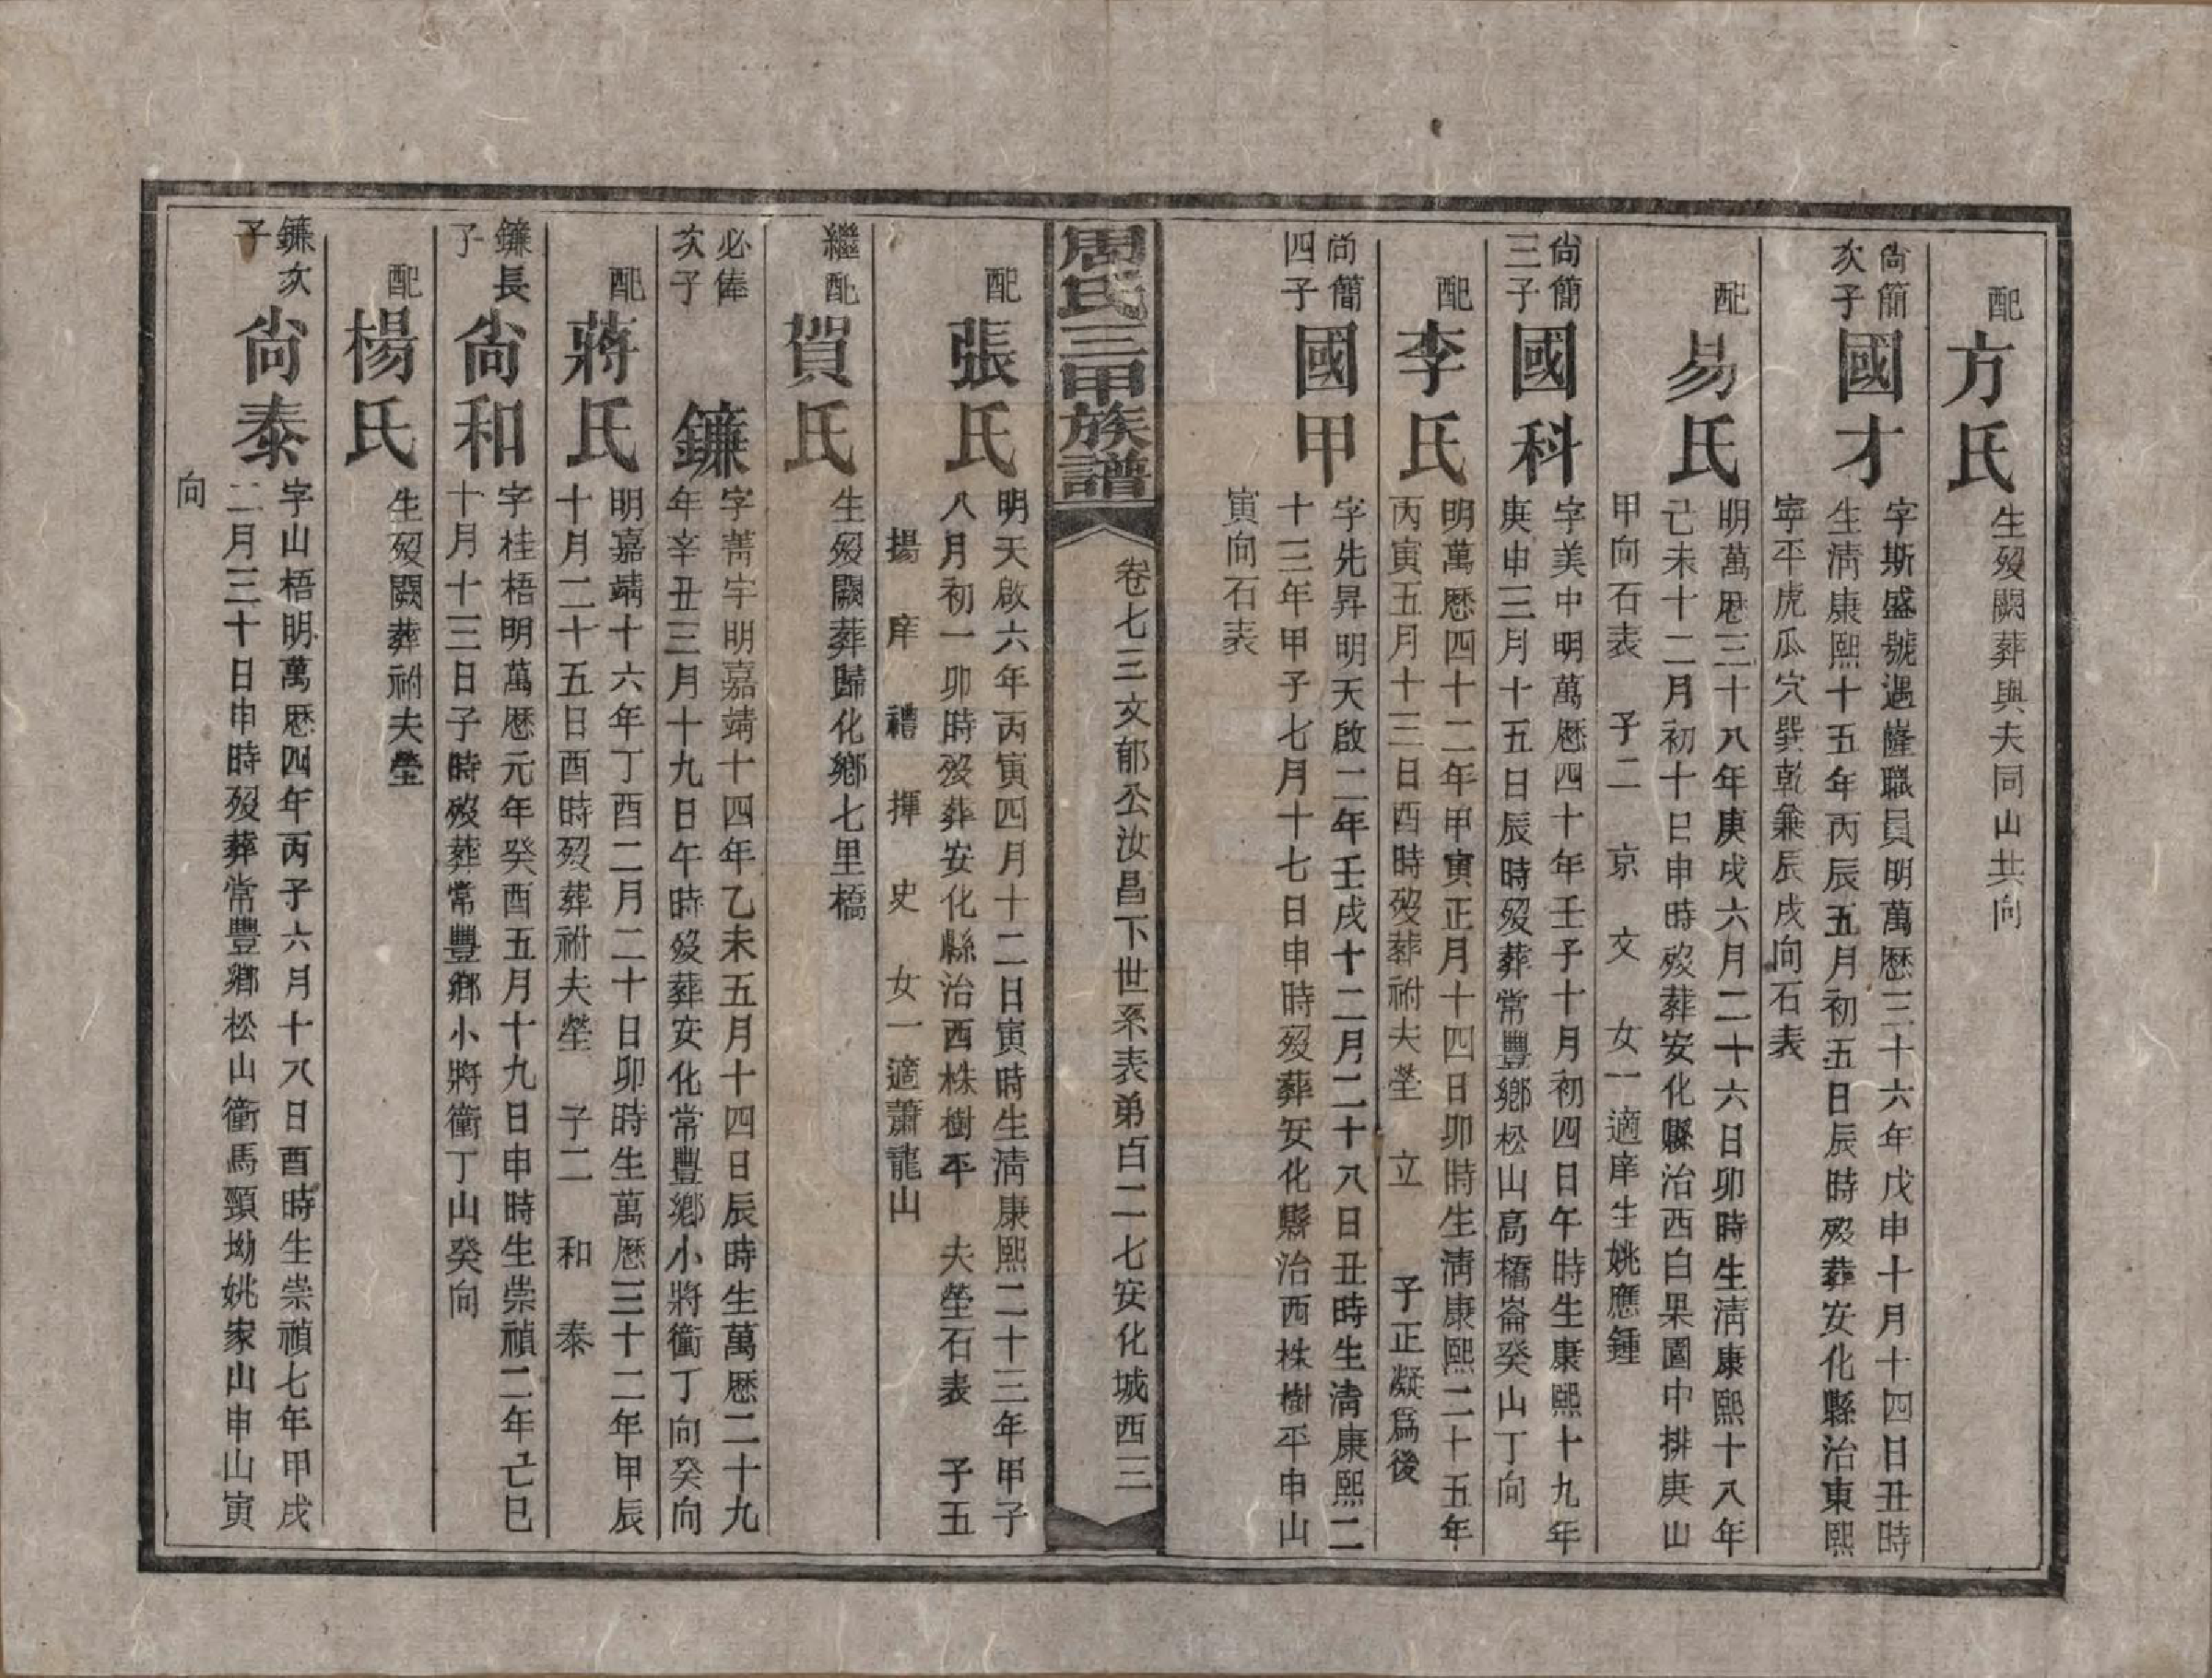 配
方氏
生歿闕葬與夫同山共向
尙簡
次子
國才
字斯盛號遇隆職員明萬歷三十六年戊申十月十四日丑時
生淸康熙十五年丙辰五月初五日辰時歿葬安化縣治東熙
寧平虎瓜穴巽乾兼辰戌向石表
配
易氏
明萬歷三十八年庚戌六月二十六日卯時生淸康熙十八年
己未十二月初十日申時歿葬安化縣治西白果園中排庚山
甲向石表 子二 京 文 女一適庠生姚應鍾
尙簡
三子
國科
字美中明萬歷四十年壬子十月初四日午時生康熙十九年
庚申三月十五日辰時歿葬常豐鄉松山高橋崙癸山丁向
配
李氏
明萬歷四十二年甲寅正月十四日卯時生淸康熙二十五年
丙寅五月十三日酉時歿葬祔夫塋 立 子正凝爲後
尙簡
四子
國甲
字先昇明天啟二年壬戌十二月二十八日丑時生淸康熙二
十三年甲子七月十七日申時歿葬安化縣治西株樹平申山
寅向石表
周氏三甲族譜
卷七三文郁公汝昌下世系表弟百二七安化城西三
配
張氏
明天啟六年丙寅四月十二日寅時生淸康熙二十三年甲子
八月初一卯時歿葬安化縣治西株樹平 夫塋石表 子五
揚 庠 禮 揮 史 女一適蕭龍山
繼配
賀氏
生歿闕葬歸化鄉七里橋
必俸
次子
鐮
字菁宇明嘉靖十四年乙未五月十四日辰時生萬歷二十九
年辛丑三月十九日午時歿葬安化常豐鄉小將衝丁向癸向
配
蔣氏
明嘉靖十六年丁酉二月二十日卯時生萬歷三十二年甲辰
十月二十五日酉時歿葬祔夫塋 子二 和 泰
鐮長
子
尙和
字桂梧明萬歷元年癸酉五月十九日申時生崇禎二年己巳
十月十三日子時歿葬常豐鄉小將衝丁山癸向
配
楊氏
生歿闕葬祔夫塋
鐮次
子
尙泰
字山梧明萬歷四年丙子六月十八日酉時生崇禎七年甲戌
二月三十日申時歿葬常豐鄉松山衝馬頸坳姚家山申山寅
向